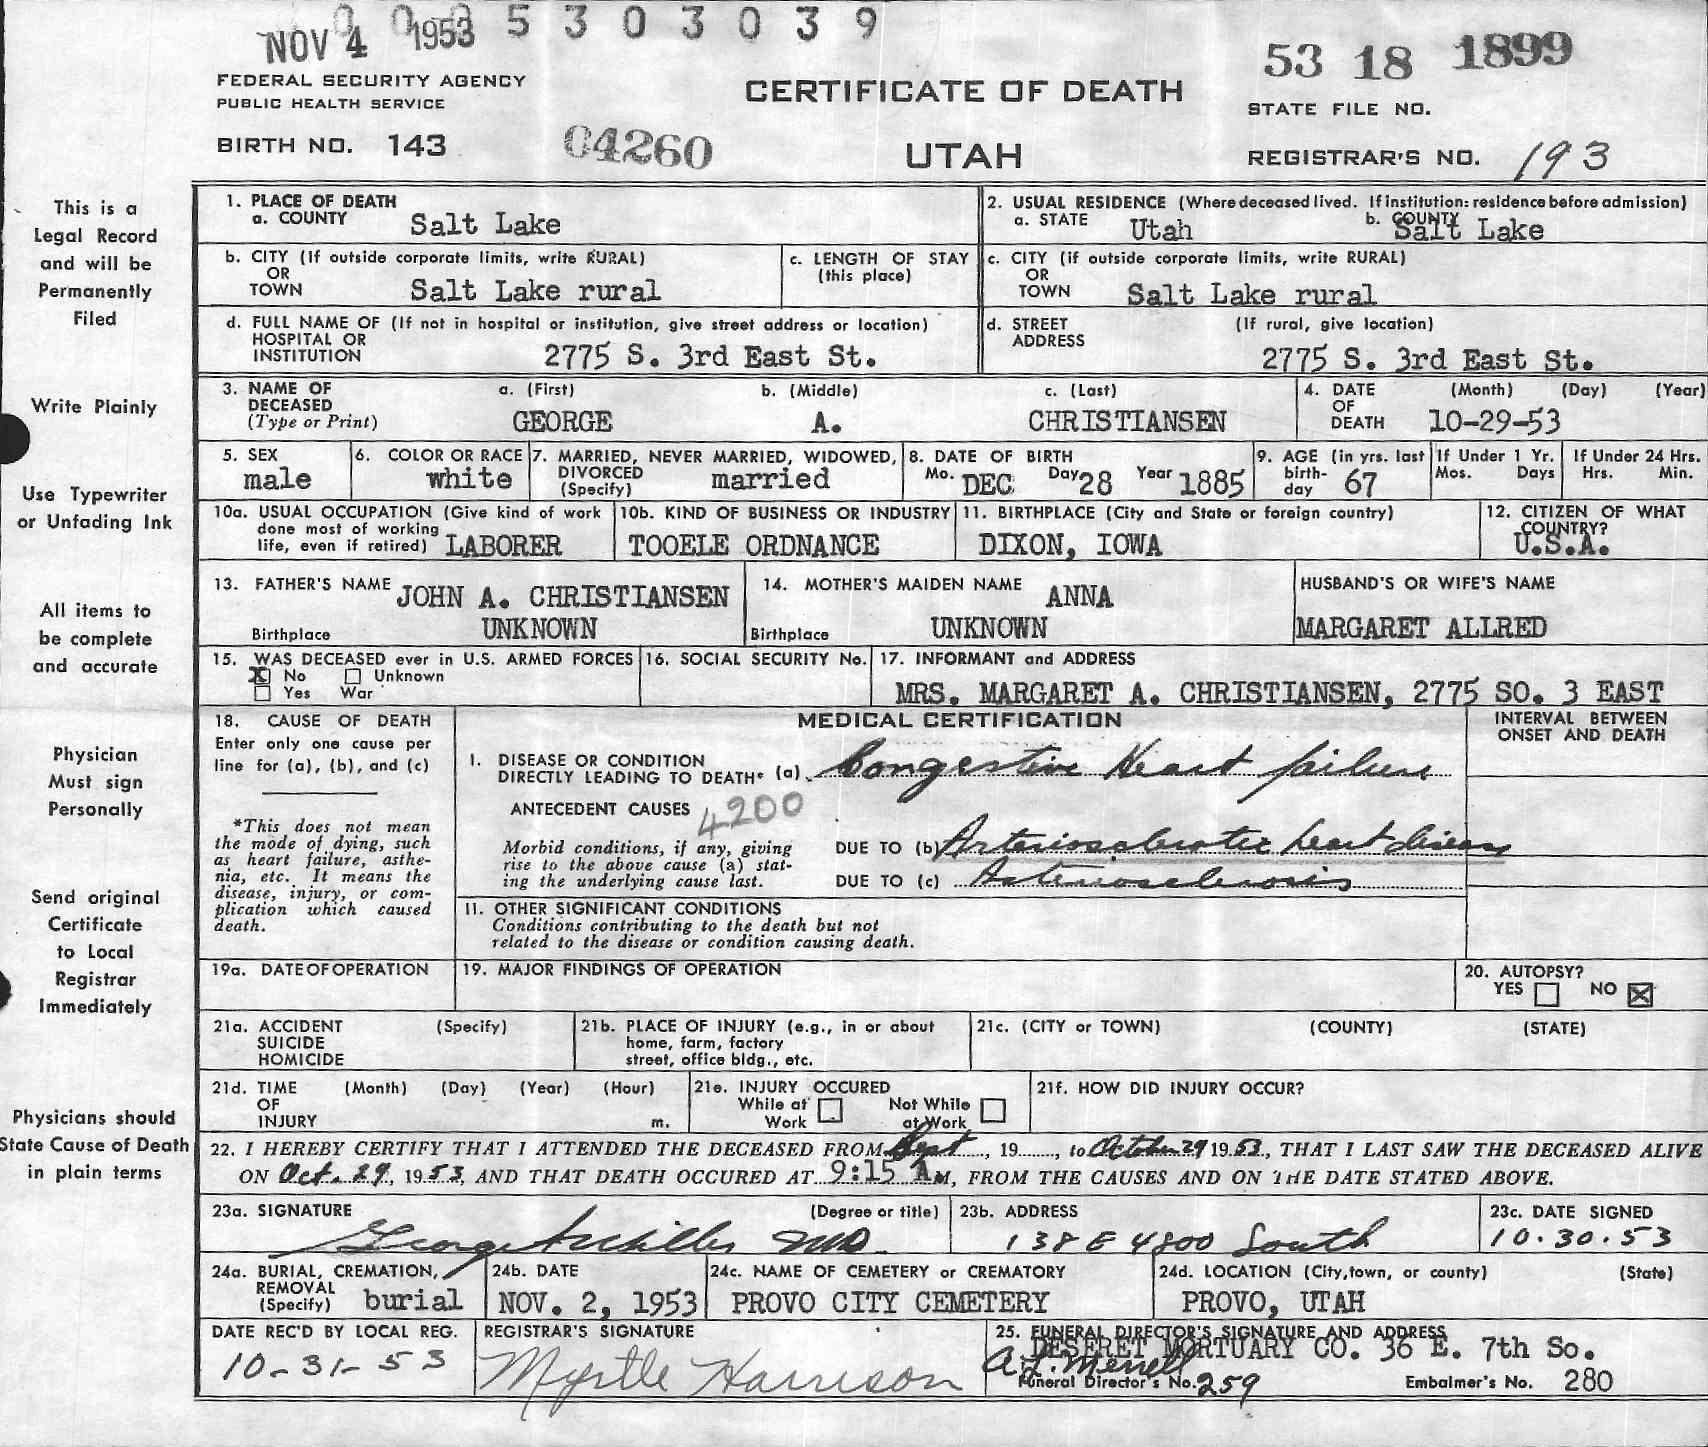 NOV 4 1953 0005303039
53 18 1899
FEDERAL SECURITY AGENCY
PUBLIC HEALTH SERVICE
CERTIFICATE OF DEATH
STATE FILE NO.
BIRTH NO. 143 04260
UTAH
REGISTRAR'S NO. 193
This is a
Legal Record
and will be
Permanently
Filed
Write Plainly
Use Typewriter
or Unfading Ink
All items to
be complete
and accurate
Physician
Must sign
Personally
Send original
Certificate
to Local
Registrar
Immediately
Physicians should
State Cause of Death
in plain terms
1. PLACE OF DEATH
a. COUNTY Salt Lake
2. USUAL RESIDENCE (Where deceased lived. If institution: residence before admission)
a. STATE Utah b. COUNTY Salt Lake
b. CITY (If outside corporate limits, write RURAL)
OR
TOWN Salt Lake rural
c. LENGTH OF STAY
(this place)
c. CITY (if outside corporate limits, write RURAL)
OR
TOWN Salt Lake rural
d. FULL NAME OF (If not in hospital or institution, give street address or location)
HOSPITAL OR
INSTITUTION 2775 S. 3rd East St.
d. STREET (If rural, give location)
ADDRESS
2775 S. 3rd East St.
3. NAME OF a. (First) b. (Middle) c. (Last)
DECEASED
(Type or Print) GEORGE A. CHRISTIANSEN
4. DATE (Month) (Day) (Year)
OF
DEATH 10-29-53
5. SEX
male
6. COLOR OR RACE
white
7. MARRIED, NEVER MARRIED, WIDOWED,
DIVORCED
(Specify) married
8. DATE OF BIRTH
Mo. DEC Day 28 Year 1885
9. AGE (in yrs. last
birth-
day 67
If Under 1 Yr.
Mos. Days
If Under 24 Hrs.
Hrs. Min.
10a. USUAL OCCUPATION (Give kind of work
done most of working
life, even if retired) LABORER
10b. KIND OF BUSINESS OR INDUSTRY
TOOELE ORDNANCE
11. BIRTHPLACE (City and State or foreign country)
DIXON, IOWA
12. CITIZEN OF WHAT
COUNTRY?
U.S.A.
13. FATHER'S NAME JOHN A. CHRISTIANSEN
Birthplace UNKNOWN
14. MOTHER'S MAIDEN NAME ANNA
Birthplace UNKNOWN
HUSBAND'S OR WIFE'S NAME
MARGARET ALLRED
15. WAS DECEASED ever in U.S. ARMED FORCES
X No Unknown
Yes War
16. SOCIAL SECURITY No.
17. INFORMANT and ADDRESS
MRS. MARGARET A. CHRISTIANSEN, 2775 SO. 3 EAST
18. CAUSE OF DEATH
Enter only one cause per
line for (a), (b), and (c)
*This does not mean
the mode of dying, such
as heart failure, asthe-
nia, etc. It means the
disease, injury, or com-
plication which caused
death.
MEDICAL CERTIFICATION
INTERVAL BETWEEN
ONSET AND DEATH
I. DISEASE OR CONDITION
DIRECTLY LEADING TO DEATH* (a) Congestive Heart failure
ANTECEDENT CAUSES 4200
Morbid conditions, if any, giving
rise to the above cause (a) stat-
ing the underlying cause last.
DUE TO (b) Arteriosclerotic heart disease
DUE TO (c) Arteriosclerosis
11. OTHER SIGNIFICANT CONDITIONS
Conditions contributing to the death but not
related to the disease or condition causing death.
19a. DATE OF OPERATION
19. MAJOR FINDINGS OF OPERATION
20. AUTOPSY?
YES NO X
21a. ACCIDENT (Specify)
SUICIDE
HOMICIDE
21b. PLACE OF INJURY (e.g., in or about
home, farm, factory
street, office bldg., etc.
21c. (CITY or TOWN) (COUNTY) (STATE)
21d. TIME (Month) (Day) (Year) (Hour)
OF
INJURY m.
21e. INJURY OCCURED
While at Work Not While at Work
21f. HOW DID INJURY OCCUR?
22. I HEREBY CERTIFY THAT I ATTENDED THE DECEASED FROM Sept, 19, to October 29 1953, THAT I LAST SAW THE DECEASED ALIVE
ON Oct. 29, 1953, AND THAT DEATH OCCURED AT 9:15 AM, FROM THE CAUSES AND ON THE DATE STATED ABOVE.
23a. SIGNATURE (Degree or title)
George MD
23b. ADDRESS
138 E 4800 South
23c. DATE SIGNED
10.30.53
24a. BURIAL, CREMATION,
REMOVAL
(Specify) burial
24b. DATE
NOV. 2, 1953
24c. NAME OF CEMETERY or CREMATORY
PROVO CITY CEMETERY
24d. LOCATION (City, town, or county) (State)
PROVO, UTAH
DATE REC'D BY LOCAL REG.
10-31-53
REGISTRAR'S SIGNATURE
Myrtle Harrison
25. FUNERAL DIRECTOR'S SIGNATURE AND ADDRESS
DESERET MORTUARY CO. 36 E. 7th So.
Funeral Director's No. 259 Embalmer's No. 280